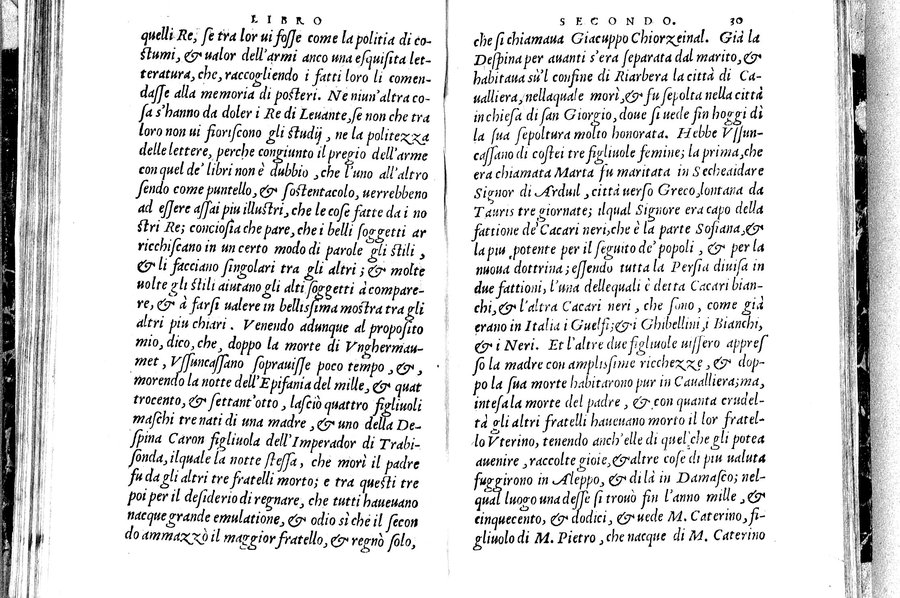 LIBRO
quelli Re, se tra lor ui fosse come la politia di co-
stumi, & ualor dell'armi anco una esquisita let-
teratura, che, raccogliendo i fatti loro li comen-
dasse alla memoria di posteri. Ne niun'altra co-
sa s'hanno da doler i Re di Leuante, se non che tra
loro non ui fioriscono gli studij, ne la politezza
delle lettere, perche congiunto il pregio dell'arme
con quel de' libri non è dubbio, che l'uno all'altro
sendo come puntello, & sostentacolo, uerrebbeno
ad essere assai piu illustri, che le cose fatte da i no
stri Re; conciosia che pare, che i belli soggetti ar
ricchiscano in un certo modo di parole gli stili,
& li facciano singolari tra gli altri; & molte
uolte gli stili aiutano gli alti soggetti à compare-
re, & à farsi ualere in bellissima mostra tra gli
altri piu chiari. Venendo adunque al proposito
mio, dico, che, doppo la morte di Vnghermau-
met, Vssuncassano soprauisse poco tempo, &,
morendo la notte dell'Epifania del mille, & quat
trocento, & settant'otto, lasciò quattro figliuoli
maschi tre nati di una madre, & uno della De-
spina Caron figliuola dell'Imperador di Trabi-
sonda, ilquale la notte stessa, che morì il padre
fu da gli altri tre fratelli morto; e tra questi tre
poi per il desiderio di regnare, che tutti haueuano
nacque grande emulatione, & odio sì che il secon
do ammazzò il maggior fratello, & regnò solo,
SECONDO. 30
che si chiamaua Giacuppo Chiorzeinal. Già la
Despina per auanti s'era separata dal marito, &
habitaua sù'l confine di Riarbera la città di Ca-
ualliera, nellaquale morì, & fu sepolta nella città
in chiesa di san Giorgio, doue si uede fin hoggi di
la sua sepoltura molto honorata. Hebbe Vssun-
cassano di costei tre figliuole femine; la prima, che
era chiamata Marta fu maritata in Secheaidare
Signor di Arduil, città uerso Greco, lontana da
Tauris tre giornate; ilqual Signore era capo della
fattione de' Cacari neri, che è la parte Sofiana, &
la piu potente per il seguito de' popoli, & per la
nuoua dottrina; essendo tutta la Persia diuisa in
due fattioni, l'una dellequali è detta Cacari bian-
chi, & l'altra Cacari neri, che sono, come già
erano in Italia i Guelfi; & i Ghibellini, i Bianchi,
& i Neri. Et l'altre due figliuole uissero appres
so la madre con amplissime ricchezze, & dop-
po la sua morte habitarono pur in Caualliera; ma,
intesa la morte del padre, & con quanta crudel-
tà gli altri fratelli haueuano morto il lor fratel-
lo Vterino, tenendo anch'elle di quel, che gli potea
auenire, raccolte gioie, & altre cose di piu ualuta
fuggirono in Aleppo, & di là in Damasco; nel-
qual luogo una d'esse si trouò fin l'anno mille, &
cinquecento, & dodici, & uede M. Caterino, fi-
gliuolo di M. Pietro, che nacque di M. Caterino